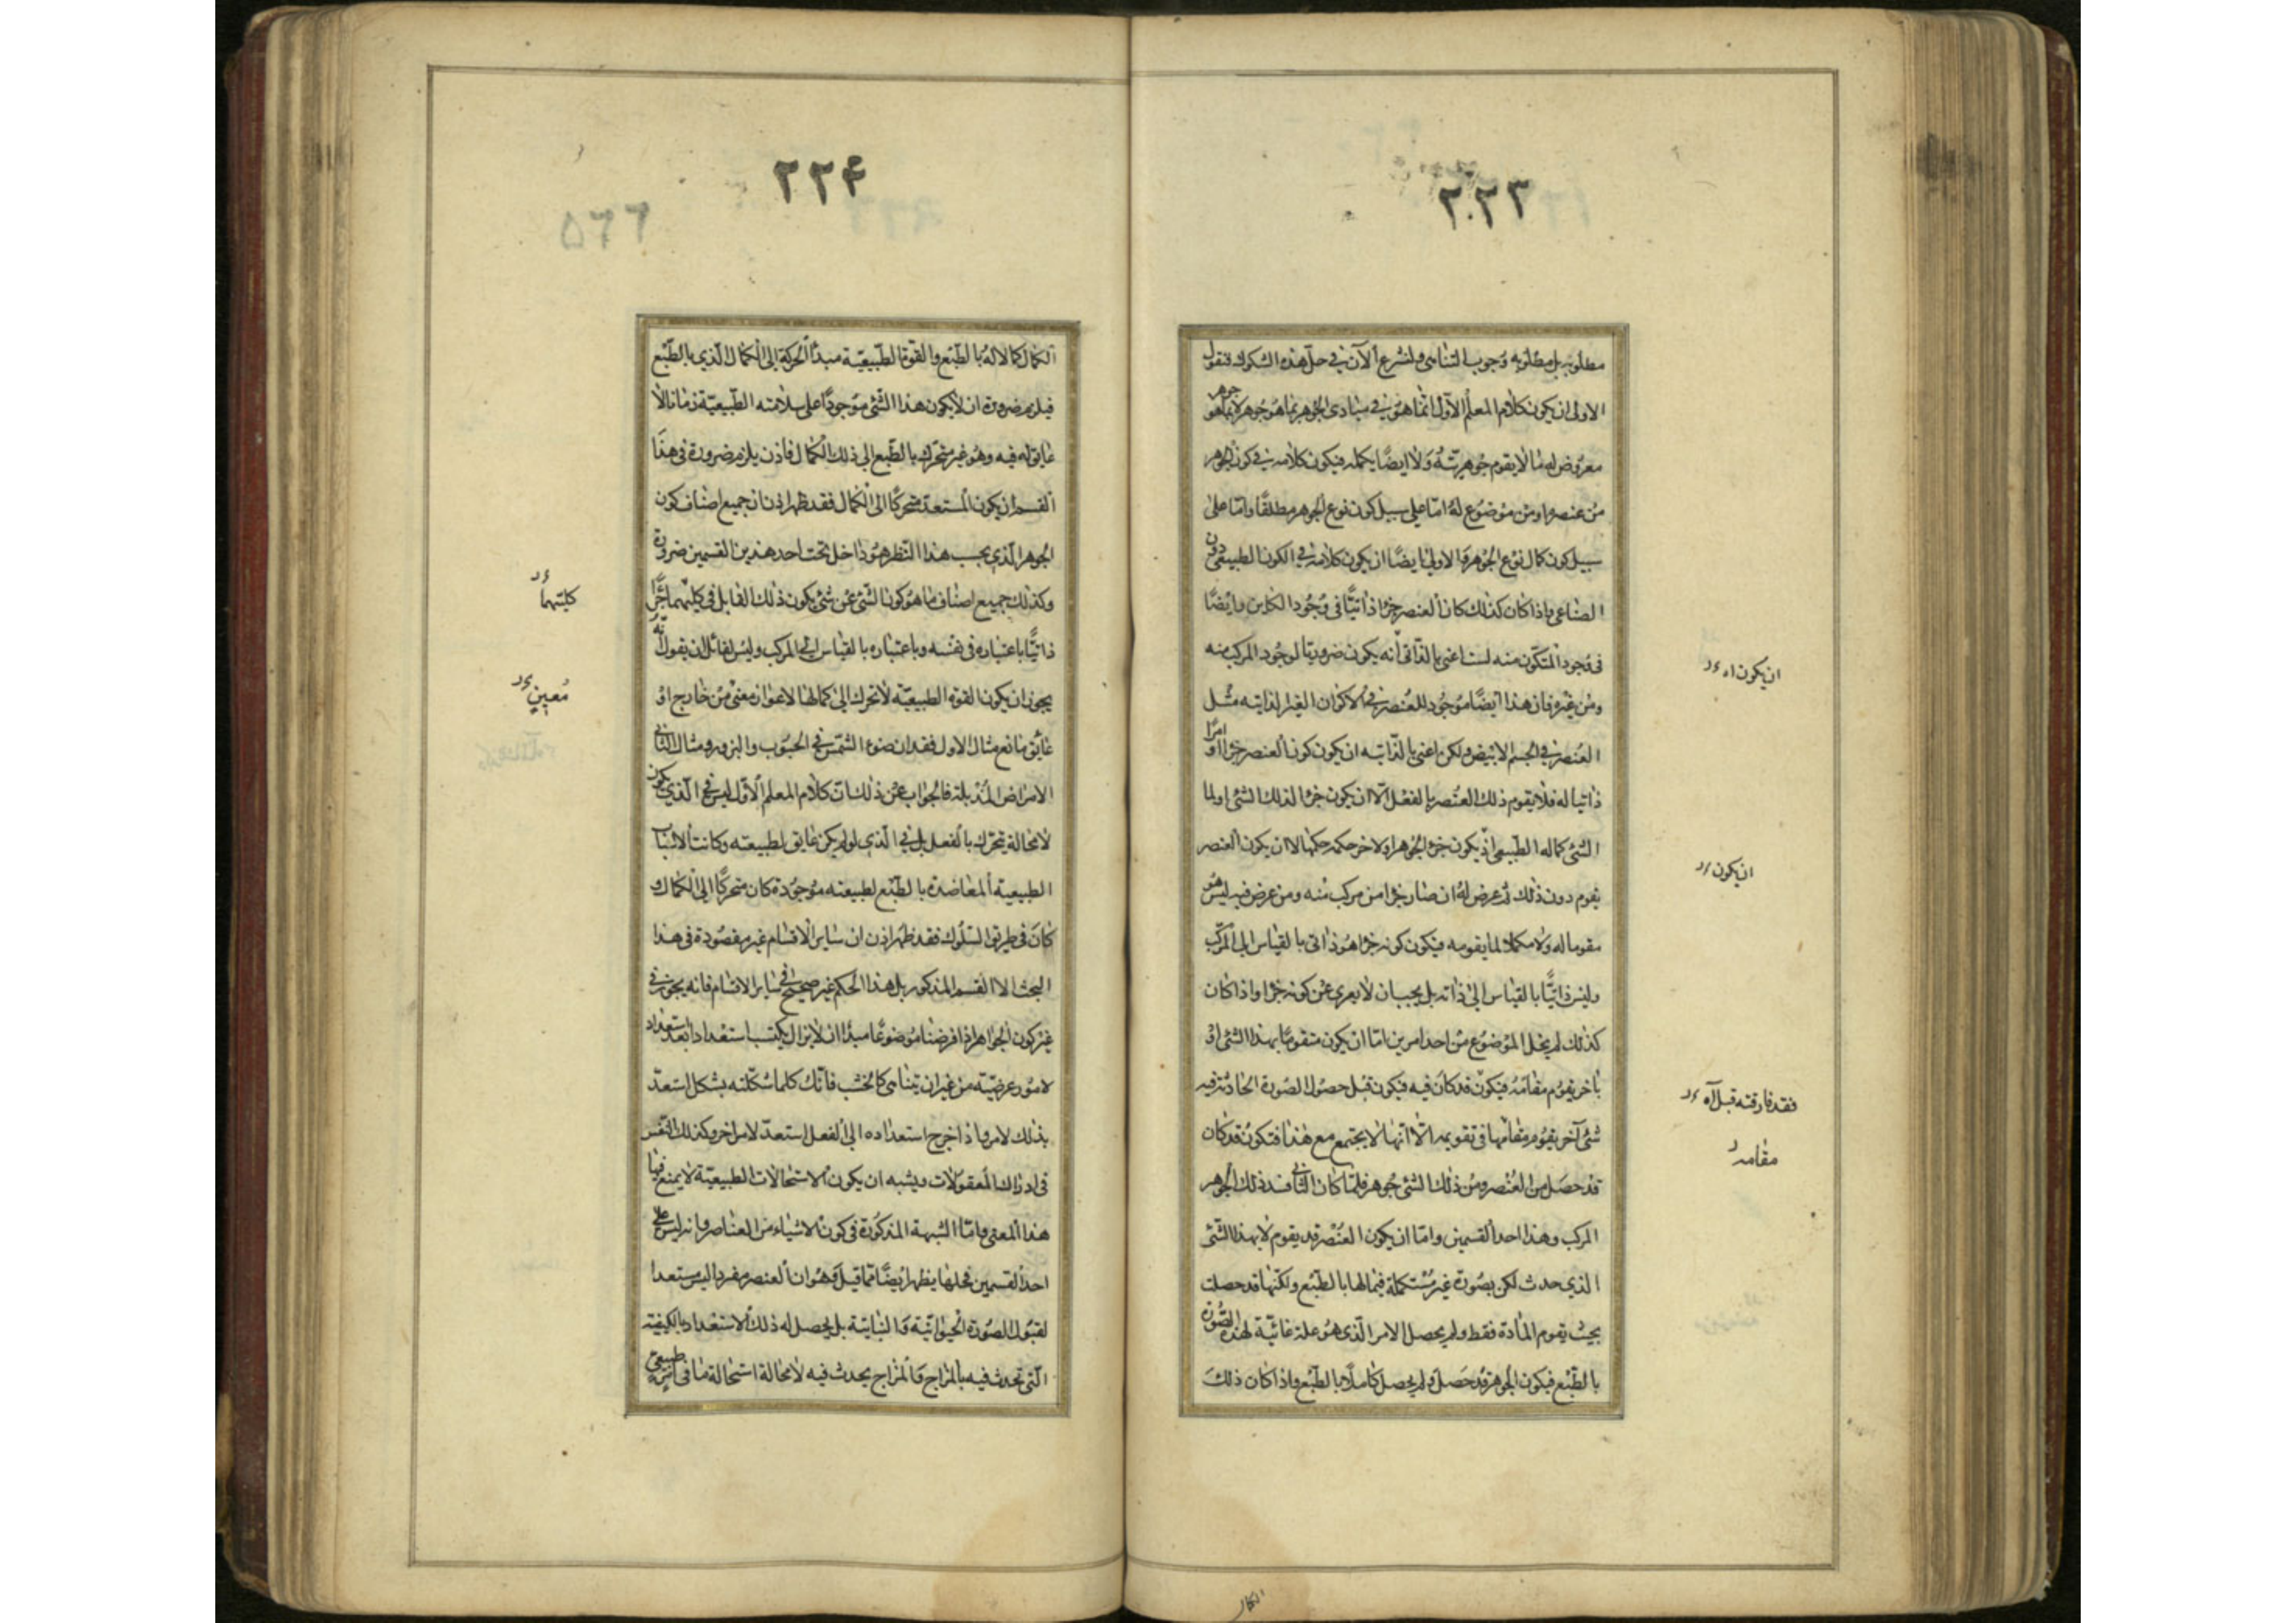 ٢٢٣
مطلوبه بل مطلوبه وجوب التناهى ولنشرع الآن في حلّ هذه الشكوك فنقول
الاولى ان يكون كلام المعلم الأول انما هو في مبادى الجوهر بما هو جوهر لا بما هو جوهر
معروض له ما لا يقوم جوهريته ولا ايضا يكمله فيكون كلامه في كون الجوهر
من عنصر او من موضوع له امّا على سبيل كون نوع الجوهر مطلقا وامّا على
سبيل كون كمال نوع الجوهر والاولى ايضًا ان يكون كلامه في الكون الطبيعى دون
الصناعى واذا كان كذلك كان العنصر جزأ ذاتيًّا فى وجود الكاين وايضًا
فى وجود المتكون منه لست اعنى بالذاتى أنه يكون ضروريا لوجود المركب منه
ومن غيره فان هذا ايضًا موجود للعنصر في الاكوان الغير الذاتيه مثل
العنصر في الجسم الابيض ولكن اعنى بالذاتيه ان يكون كون العنصر جزأ امرًا او
ذاتيا له فلا يقوم ذلك العنصر بالفعل الّا ان يكون جزءا لذلك الشئ او لما
الشئ كماله الطبيعى اذ يكون جزء الجوهر اولاخر حكمه حكمها لا ان يكون العنصر
يقوم دون ذلك ثم عرض له ان صار جزءا من مركب منه ومن عرض فيه ليس هو
مقوما له ولا مكملا لما يقومه فيكون كونه جزءا هو ذاتى بالقياس الى المركّب
وليس ذاتيًّا بالقياس الى ذاته بل يجب ان لا يعرى عن كونه جزءا واذا كان
كذلك لم يخل الموضوع من احد امرين امّا ان يكون متقومًا بهذا الشئ او
باخر يقوم مقامه فيكون قد كان فيه فيكون قبل حصول الصورة الحادثة فيه
شئ آخر يقوم مقامها فى تقويمه الّا انها لا يجتمع مع هذا فتكون قد كان
قد حصل من العنصر ومن ذلك الشئ جوهر فلمّا كان الثانى فسد ذلك الجوهر
المركب وهذا احد القسمين وامّا ان يكون العنصر قد يقوم لا بهذا الشئ
الذي حدث لكن بصورة غير مستكملة فيما لها بالطبع ولكنها قد حصلت
بحيث يقوم المادة فقط ولم يحصل الامر الّذى هو علة غائيّة لهذه الصورة
بالطبع فيكون الجوهر قد حصل ولم يحصل كاملًا بالطبع واذا كان ذلك
ان يكون اه
ان يكون
فقد فارقته قبل آه
مقامه
الكمال
٢٢٤
٥٦٦
الكمال كمالا له بالطبع والقوة الطبيعيّة مبدأ الحركة الى الكمال الّذي بالطبع
فيلزم ضرورة ان لا يكون هذا الشئ موجودًا على سلامته الطبيعيّة زمانا لا
عايق له فيه وهو غير متحرك بالطبع الى ذلك الكمال فاذن يلزم ضرورة فى هذا
القسم ان يكون المستعدّ متحركًا الى الكمال فقد ظهر اذن ان جميع اصناف كون
الجوهر الّذي يجب هذا النظر هو داخل تحت احد هذين القسمين ضرورة
وكذلك جميع اصناف ما هو كون الشئ عن شئ يكون ذلك القابل فى كليتهما جزأ
ذاتيًّا باعتباره فى نفسه وباعتباره بالقياس الى المركب وليس لقائل ان يقول انّه
يجوز ان يكون القوة الطبيعيّة لا تحرك الى كمالها لاعواز معنى من خارج او
عائق مانع مثال الاول فقدان ضوء الشمس في الحبوب والبزور ومثال الثانى
الامراض المذبلة فالجواب عن ذلك انّ كلام المعلم الأوّل ليس في الّذي يكون
لا محالة يتحرك بالفعل بل في الّذي لو لم يكن عايق لطبيعته وكانت الاسباب
الطبيعية المعاضدة بالطبع لطبيعته موجودة كان متحركًا الى الكمال و
كان فى طريق السلوك فقد ظهر اذن ان ساير الاقسام غير مقصودة فى هذا
البحث الا القسم المذكور بل هذا الحكم غير صحيح في ساير الاقسام فانه يجوز في
غير كون الجواهر اذا فرضنا موضوعًا مبدأ ان لا يزال يكتسب استعدادا بعد استعداد
لامور عرضيّة من غير ان يتناهى كالخشب فانّك كلما شكلته بشكل استعدّ
بذلك لامر واذا خرج استعداده الى الفعل استعدّ لامر اخر وكذلك النفس
فى ادراك المعقولات ويشبه ان يكون الاستحالات الطبيعيّة لا يمنع فيها
هذا المعنى وامّا الشبهة المذكورة فى كون الاشياء من العناصر وانه ليس على
احد القسمين فحلها يظهر ايضًا ممّا قيل وهو ان العنصر مفردا ليس مستعدا
لقبول الصورة الحيوانيّة والنباتية بل يحصل له ذلك الاستعداد بالكيفيّة
الّتى تحدث فيه بالمزاج والمزاج يحدث فيه لا محالة استحالة ما فى امر طبيعى
كليتهما
معين